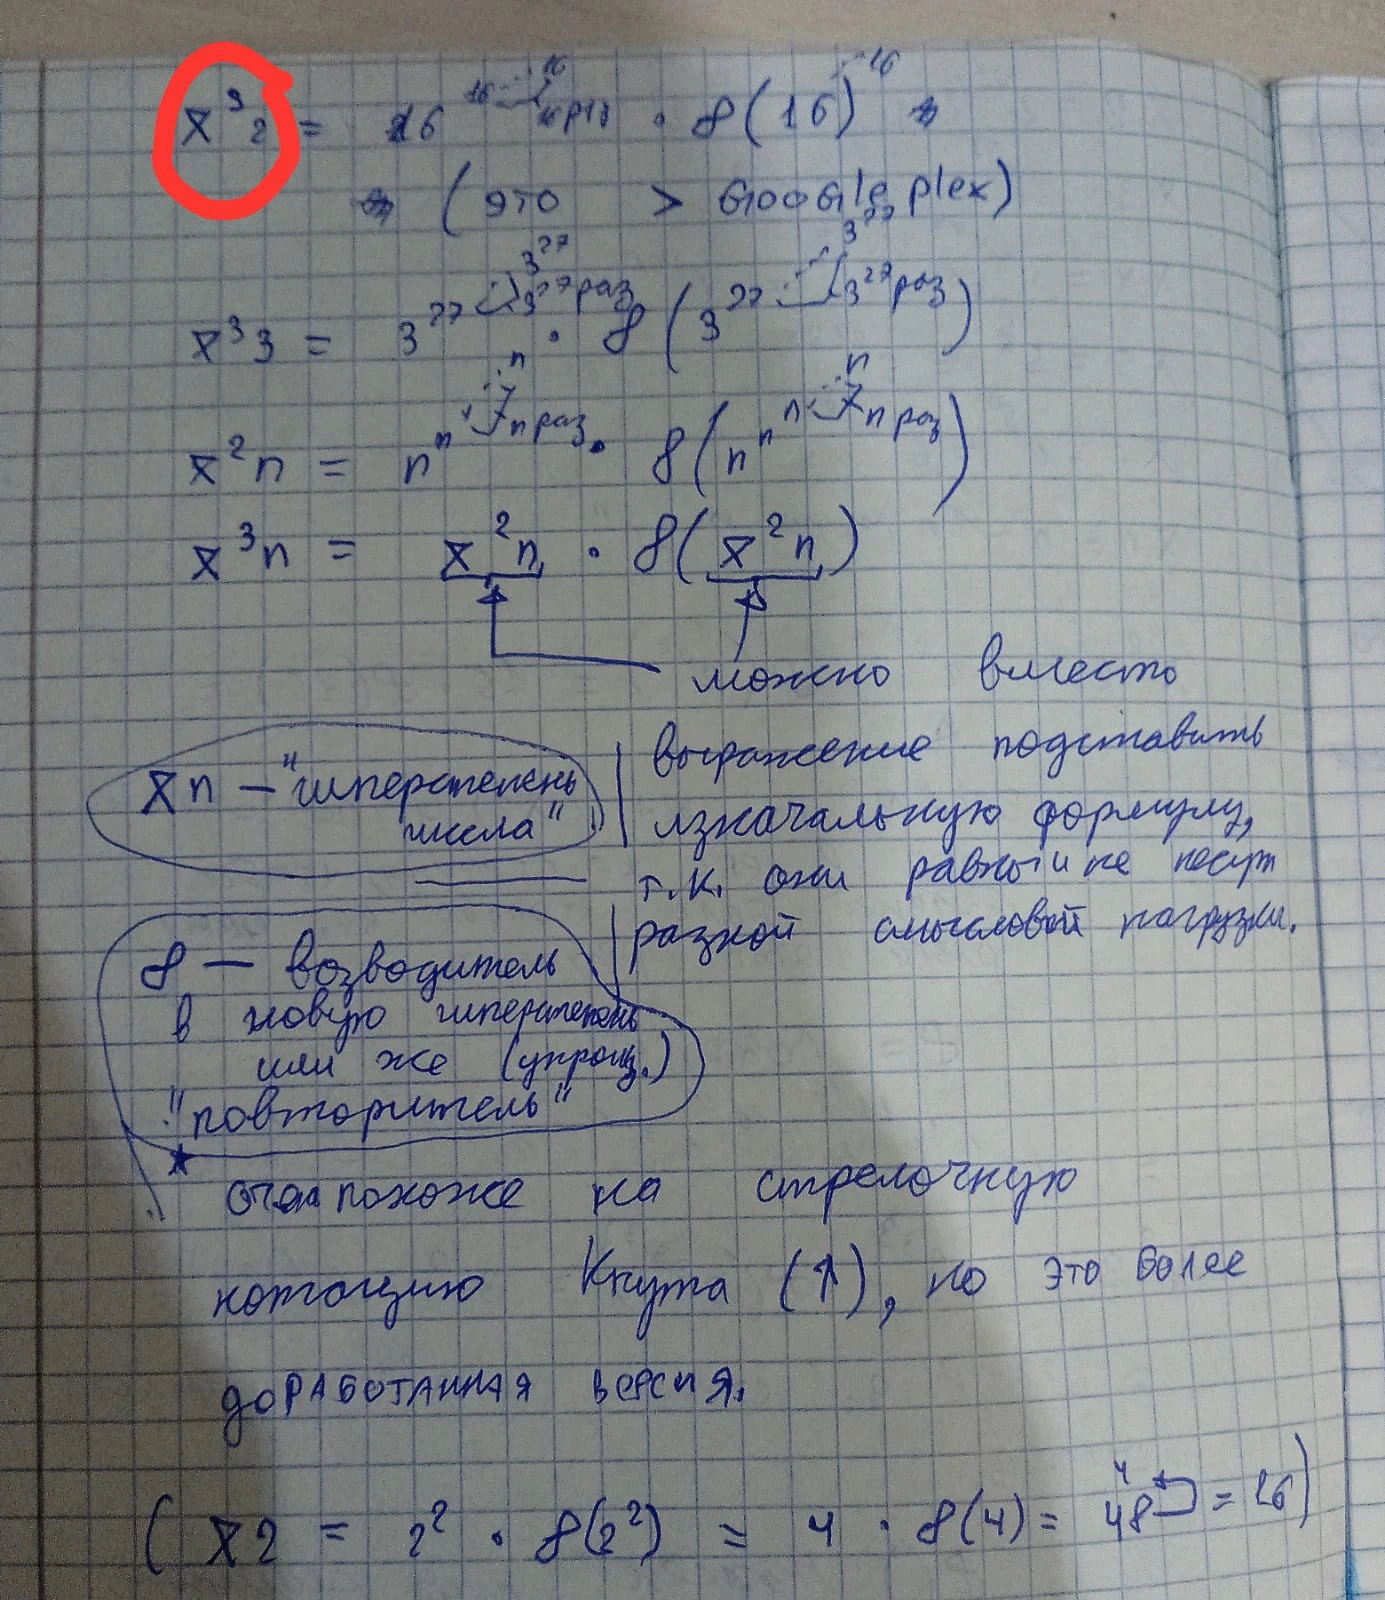 x̄³2 = 16^16^⋰^16 · 8(16)^⋰^16
(это > GooGle plex)
x̄³3 = 3^27^⋰^3^27 3^27 раз · 8(3^27^⋰^3^27 3^27 раз)
x̄²n = n^n^⋰^n n раз · 8(n^n^n^⋰^n n раз)
x̄³n = x̄²n · 8(x̄²n)
можно вместо
выражение подставить
изначальную формулу,
т.к. они равны и не несут
разной смысловой нагрузки.
x̄n – "гиперстепень
числа"
8 — возводитель
в новую гиперстепень
или же (упрощ.)
"повторитель"
* похоже на стрелочную
нотацию Кнута (↑), но это более
доработанная версия.
(x̄2 = 2² · 8(2²) = 4 · 8(4) = 4⁴8 = 16)